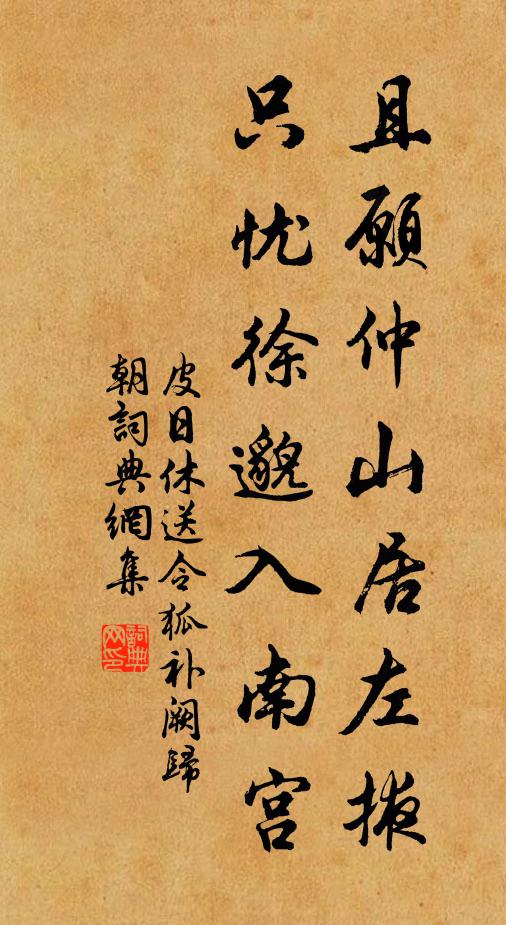 且願仲山居左掖
只忧徐邈入南宮
皮日休送令狐补阙歸
朝詞典網集
詞典网印